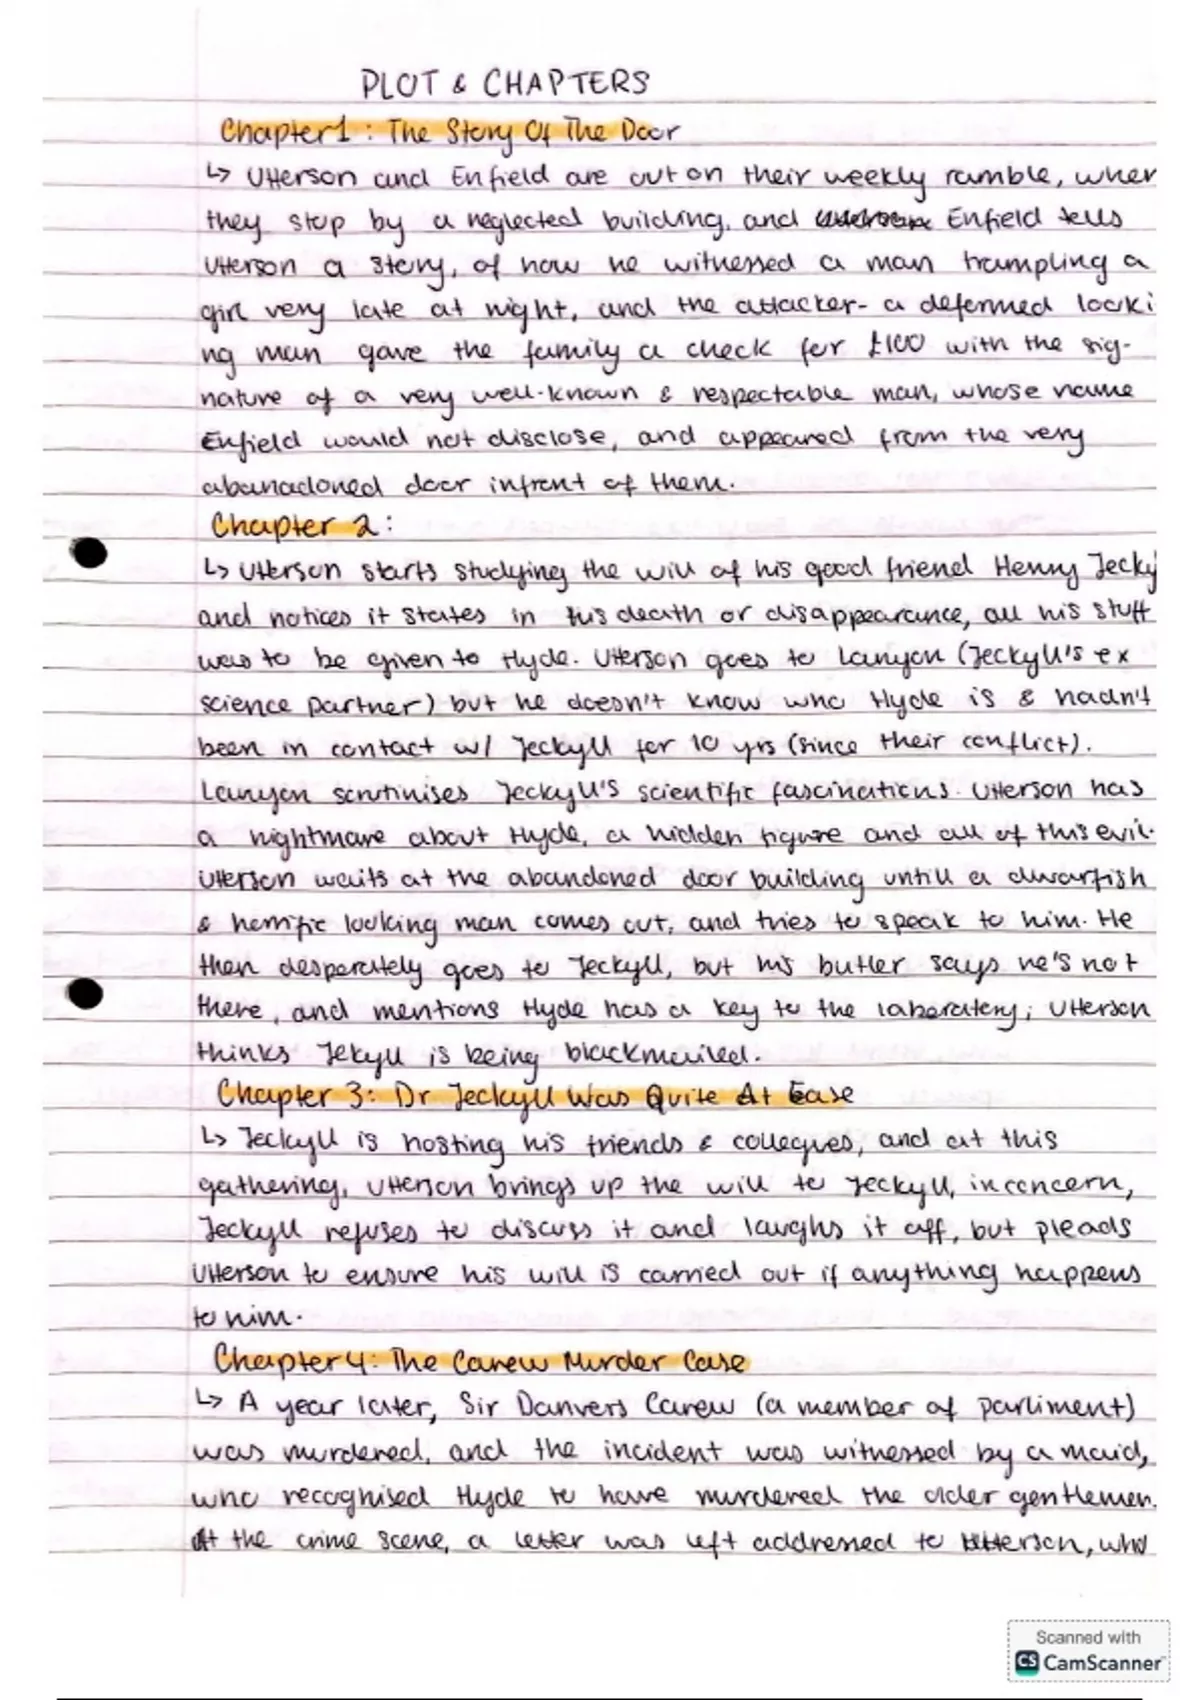 PLOT & CHAPTERS
Chapter 1 : The Story Of The Door
↳ Utterson and Enfield are out on their weekly ramble, when
they stop by a neglected building, and Enfield tells
Utterson a story, of how he witnessed a man trampling a
girl very late at night, and the attacker- a deformed looki
ng man gave the family a check for £100 with the sig-
nature of a very well-known & respectable man, whose name
Enfield would not disclose, and appeared from the very
abanadoned door infront of them.
Chapter 2 :
↳ Utterson starts studying the will of his good friend Henry Jecky
and notices it states in his death or disappearance, all his stuff
was to be given to Hyde. Utterson goes to Lanyon (Jeckyll's ex
science partner) but he doesn't know who Hyde is & hadn't
been in contact w/ Jeckyll for 10 yrs (since their conflict).
Lanyon scrutinises Jeckyll's scientific fascinations. Utterson has
a nightmare about Hyde, a hidden figure and all of this evil.
Utterson waits at the abandoned door building untill a dwarfish
& horrific looking man comes out, and tries to speak to him. He
then desperately goes to Jeckyll, but his butler says he's not
there, and mentions Hyde has a key to the laboratory; Utterson
thinks Jekyll is being blackmailed.
Chapter 3: Dr Jeckyll Was Quite At Ease
↳ Jeckyll is hosting his friends & collegues, and at this
gathering, Utterson brings up the will to Jeckyll, in concern,
Jeckyll refuses to discuss it and laughs it off, but pleads
Utterson to ensure his will is carried out if anything happens
to him.
Chapter 4: The Carew Murder Case
↳ A year later, Sir Danvers Carew (a member of parliment)
was murdered, and the incident was witnessed by a maid,
who recognised Hyde to have murdered the older gentlemen.
At the crime scene, a letter was left addressed to Utterson, who
Scanned with
CS CamScanner